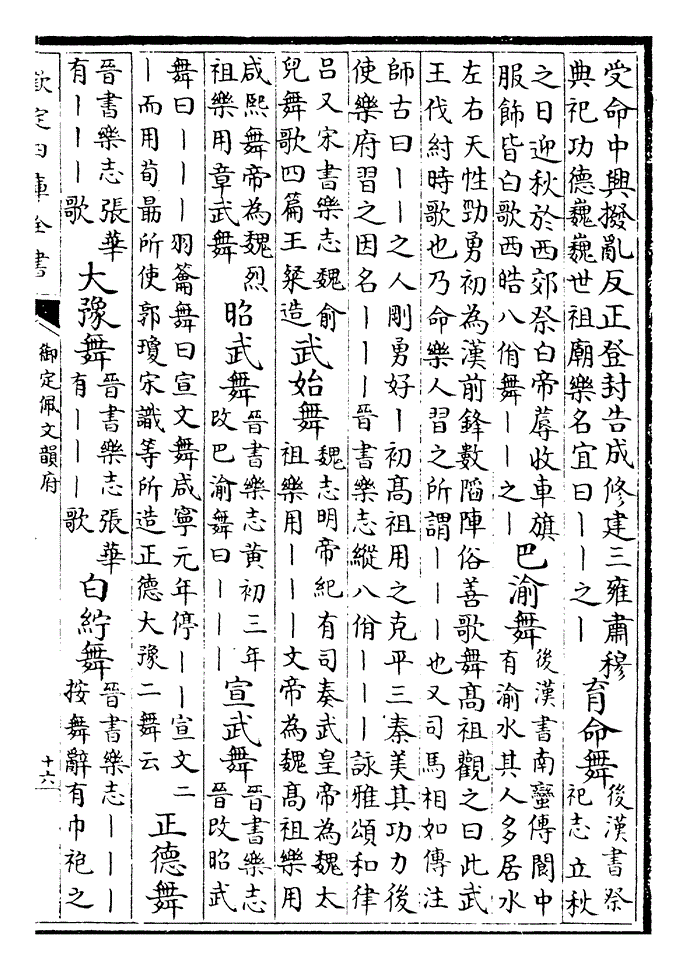 受命中興撥亂反正登封告成修建三雍肅穆
典祀功德巍巍世祖廟樂名宜曰——之—
育命舞
後漢書祭
祀志立秋
之日迎秋於西郊祭白帝蓐收車旗
服飾皆白歌西皓八佾舞——之—
巴渝舞
後漢書南蠻傳閬中
有渝水其人多居水
左右天性勁勇初為漢前鋒數䧟陣俗善歌舞髙祖觀之曰此武
王伐紂時歌也乃命樂人習之所謂———也又司馬相如傳注
師古曰——之人剛勇好—初髙祖用之克平三秦美其功力後
使樂府習之因名———晉書樂志縱八佾———詠雅頌和律
吕又宋書樂志魏俞
兒舞歌四篇王粲造
武始舞
魏志明帝紀有司奏武皇帝為魏太
祖樂用———文帝為魏髙祖樂用
咸熙舞帝為魏烈
祖樂用章武舞
昭武舞
晉書樂志黄初三年
改巴渝舞曰———
宣武舞
晉書樂志
晉改昭武
舞曰———羽籥舞曰宣文舞咸寧元年停——宣文二
—而用荀勗所使郭瓊宋識等所造正德大豫二舞云
正德舞
晉書樂志張華
有———歌
大豫舞
晉書樂志張華
有———歌
白紵舞
晉書樂志———
按舞辭有巾袍之
欽定四庫全書
御定佩文韻府
十六